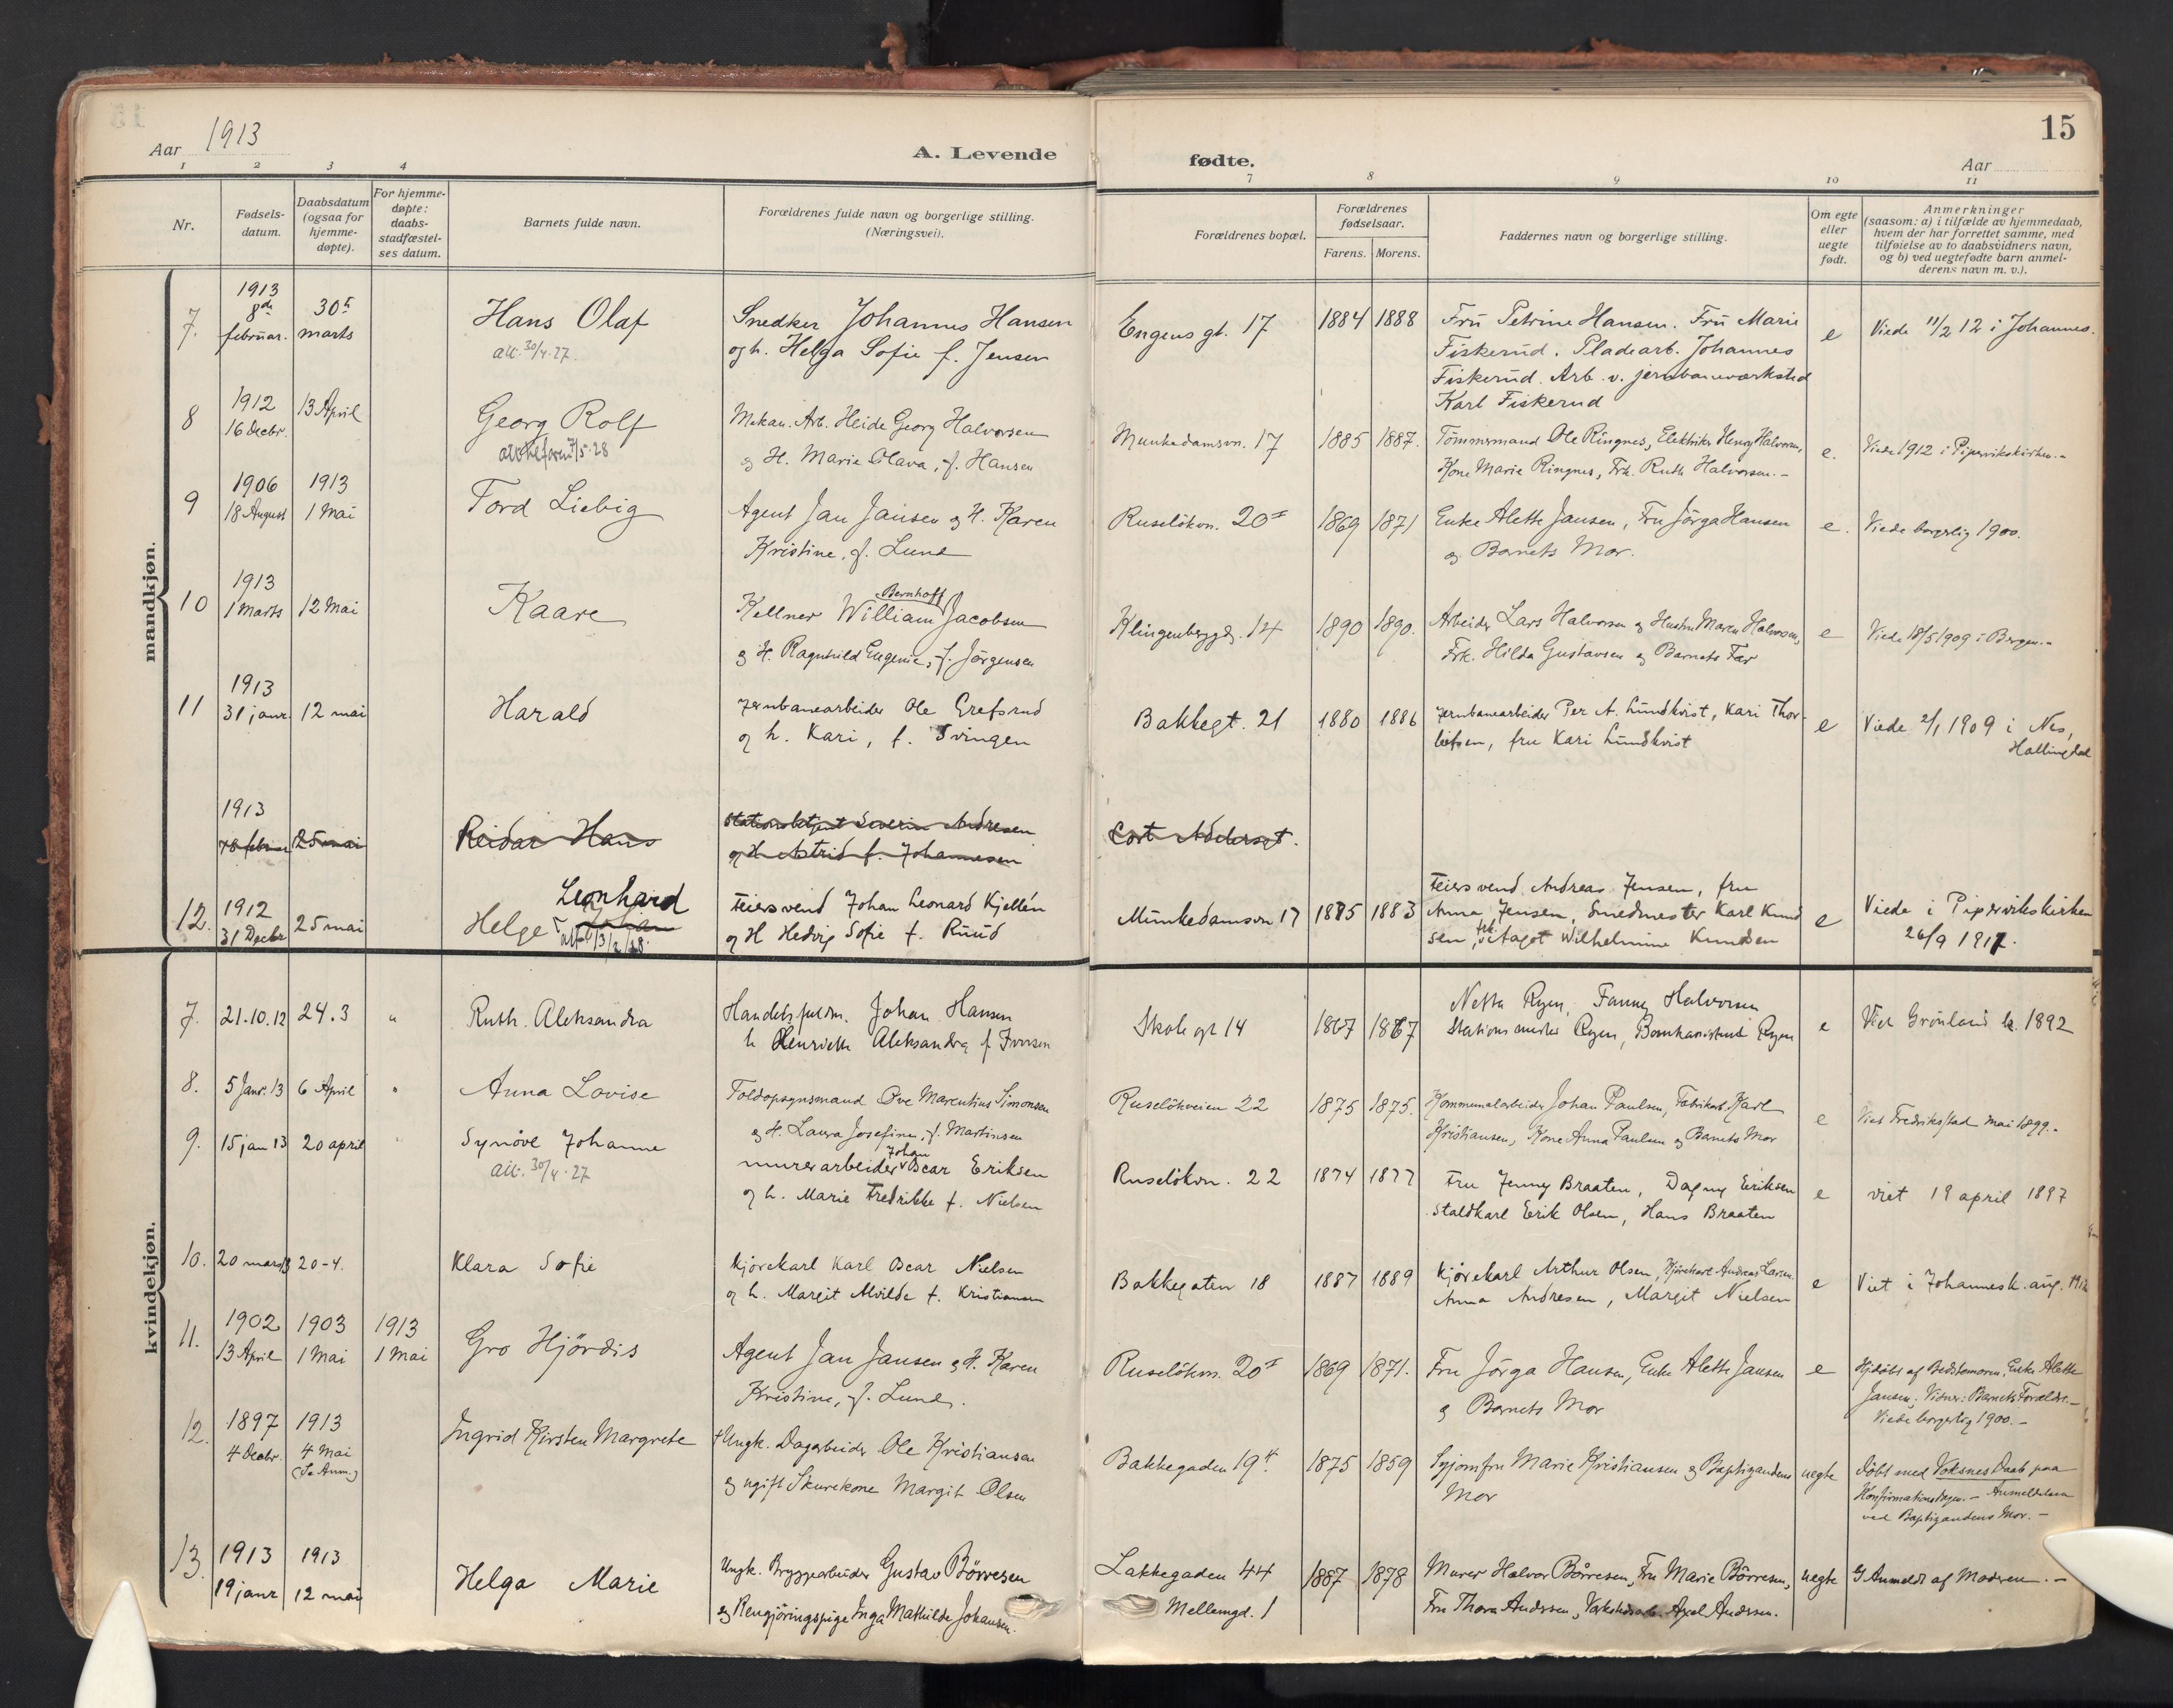 15
Aar 1913
A. Levende fødte.
Aar
1 2 3 4 7 8 9 10 11
Nr.
Fødsels-
datum.
Daabsdatum
(ogsaa for
hjemme-
døpte).
For hjemme-
døpte:
daabs-
stadfæstel-
ses datum.
Barnets fulde navn.
Forældrenes fulde navn og borgerlige stilling.
(Næringsvei).
Forældrenes bopæl.
Forældrenes
fødselsaar.
Farens. Morens.
Faddernes navn og borgerlige stilling.
Om egte
eller
uegte
født.
Anmerkninger
(saasom: a) i tilfælde av hjemmedaab,
hvem der har forrettet samme, med
tilføielse av to daabsvidners navn,
og b) ved uegtefødte barn anmel-
derens navn m. v.).
mandkjøn.
7. 1913 8de februar. 30te marts
Hans Olaf
att. 30/4.27.
Snedker Johannes Hansen
og h. Helga Sofie f. Jensen
Engens gt. 17 1884 1888
Fru Petrine Hansen. Fru Marie
Fiskerud. Pladearb. Johannes
Fiskerud. Arb. v. jernbaneværksted
Karl Fiskerud
e Viede 11/2 12 i Johannes.
8 1912 16 Decbr. 13 April
Georg Rolf
Mekan. Arb. Heide Georg Halvorsen
og H. Marie Olava, f. Hansen
Munkedamsvn. 17 1885 1887.
Tømmermand Ole Ringnes, Elektriker Henry Halvorsen,
Kone Marie Ringnes, Frk. Ruth Halvorsen.-
e. Viede 1912 i Pipervikskirken.-
9 1906 18 August 1913 1 Mai
Tord Liebig
Agent Jan Jansen og H. Karen
Kristine, f. Lund
Ruseløkvn. 20 I 1869 1871
Enke Alette Jansen, Fru Jörga Hansen
og Barnets Mor.
e. Viede borgerlig 1900.
10 1913 1 Marts 12 Mai
Kaare
Bernhoff
Kellner William Jacobsen
og H. Ragnhild Eugenie, f. Jörgensen
Klingenberggd. 14 1890 1890.
Arbeider Lars Halvorsen og Hustru Maren Halvorsen,
Frk. Hilda Gustavsen og Barnets Far
e Viede 18/5 1909 i Bergen.-
11 1913 31 janr. 12 mai
Harald
Jernbanearbeider Ole Grefsrud
og h. Kari, f. Svingen
Bakkegt. 21 1880 1886
Jernbanearbeider Per A. Lundkvist, Kari Thor-
leifsen, fru Kari Lundkvist
e Viede 2/1 1909 i Nes,
Hallingdal
1913
18 februar 25 mai
Reidar Hans
Stationsbetjent Severin Andresen
og H Astrid f. Johannesen
Cort Adelersgt.
12. 1912 31 Decbr 25 mai
Leonhard
Helge Johan
Feiersvend Johan Leonard Kjellén
og H Hedvig Sofie f. Ruud
Munkedamsvn 17 1885 1883
Feiersvend Andreas Jensen, fru
Anna Jensen, Smedmester Karl Knud
sen, frk. Aagot Wilhelmine Knudsen
e Viede i Pipervikskirken
26/9 1912.
kvindekjøn.
7. 21.10.12 24.3 "
Ruth. Aleksandra
Handelsfuldm. Johan Hansen
h Henriette Aleksandra f Iversen
Skole gt 14 1867 1867
Netta Ryen, Fanny Halvorsen
Stationsmester Ryen, Ryen
e Viet Grönland k. 1892
8. 5 Janr. 13 6 April "
Anna Lovise
Toldopsynsmand Ove Marentius Simonsen
og H. Laura Josefine, f. Martinsen
Ruselökveien 22 1875 1875.
Kommunalarbeider Johan Paulsen, Fabrikarb. Karl
Kristiansen, Kone Anna Paulsen og Barnets Mor
e Viet Fredrikstad Mai 1899.-
9. 15 jan 13 20 april "
Synöve Johanne
att. 30/4.27
Johan
murerarbeider Oscar Eriksen
og h. Marie Fredrikke f. Nielsen
Ruselökvn. 22 1874 1877
Fru Jenny Braaten, Dagny Eriksen
Staldkarl Erik Olsen, Hans Braaten
e viet 19 april 1897
10. 20 mars 13 20-4.
Klara Sofie
Kjørekarl Karl Oscar Nielsen
og h. Margit Alvilde f. Kristiansen
Bakkegaten 18 1887 1889
Kjørekarl Arthur Olsen, Kjørekarl Andreas Larsen.
Anna Andresen, Margit Nielsen
e Viet i Johannesk. aug. 1912
11. 1902 13 April 1903 1 Mai 1913 1 Mai
Gro Hjördis
Agent Jan Jansen og H. Karen
Kristine, f. Lund.
Ruselökvn. 20 I 1869 1871.
Fru Jörga Hansen, Enke Alette Jansen
og Barnets Mor
e Hjdøbt af Bedstemoren, Enke Alette
Jansen; Vidner: Barnets Forældre.-
Viede borgerlig 1900.-
12. 1897 4 Decbr. 1913 4 Mai (Se Anm.)
Ingrid Kirsten Margrete
Ungk. Dagarbeider Ole Kristiansen
og ugift Skurekone Margit Olsen
Bakkegaden 19 II. 1875 1859
Syjomfru Marie Kristiansen og Baptizandens
Mor
uegte Døbt med Voksnes Daab paa
Konfirmationsdagen.- Anmeldelsen
ved Baptizandens Mor.-
13. 1913 19 janr 1913 12 mai
Helga Marie
Ungk. Bryggearbeider Gustav Börresen
og Rengjöringspige Inga Mathilde Johansen.
Lakkegaden 44 1887 1878
Mellemgd. 1
Murer Halvor Börresen, Fru Marie Börresen,
Fru Thora Andersen, Verkstedsarb. Axel Andersen.
uegte Anmeldt af Moderen.-